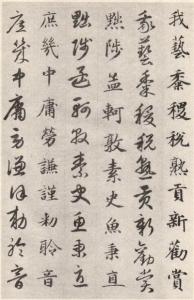 我藝黍稷稅熟貢新勸賞
我藝黍稷稅熟貢新勸賞
黜陟孟軻敦素史魚秉直
黜陟孟軻敦素史魚秉直
庶幾中庸勞謙謹勑聆音
庶幾中庸勞謙謹勑聆音